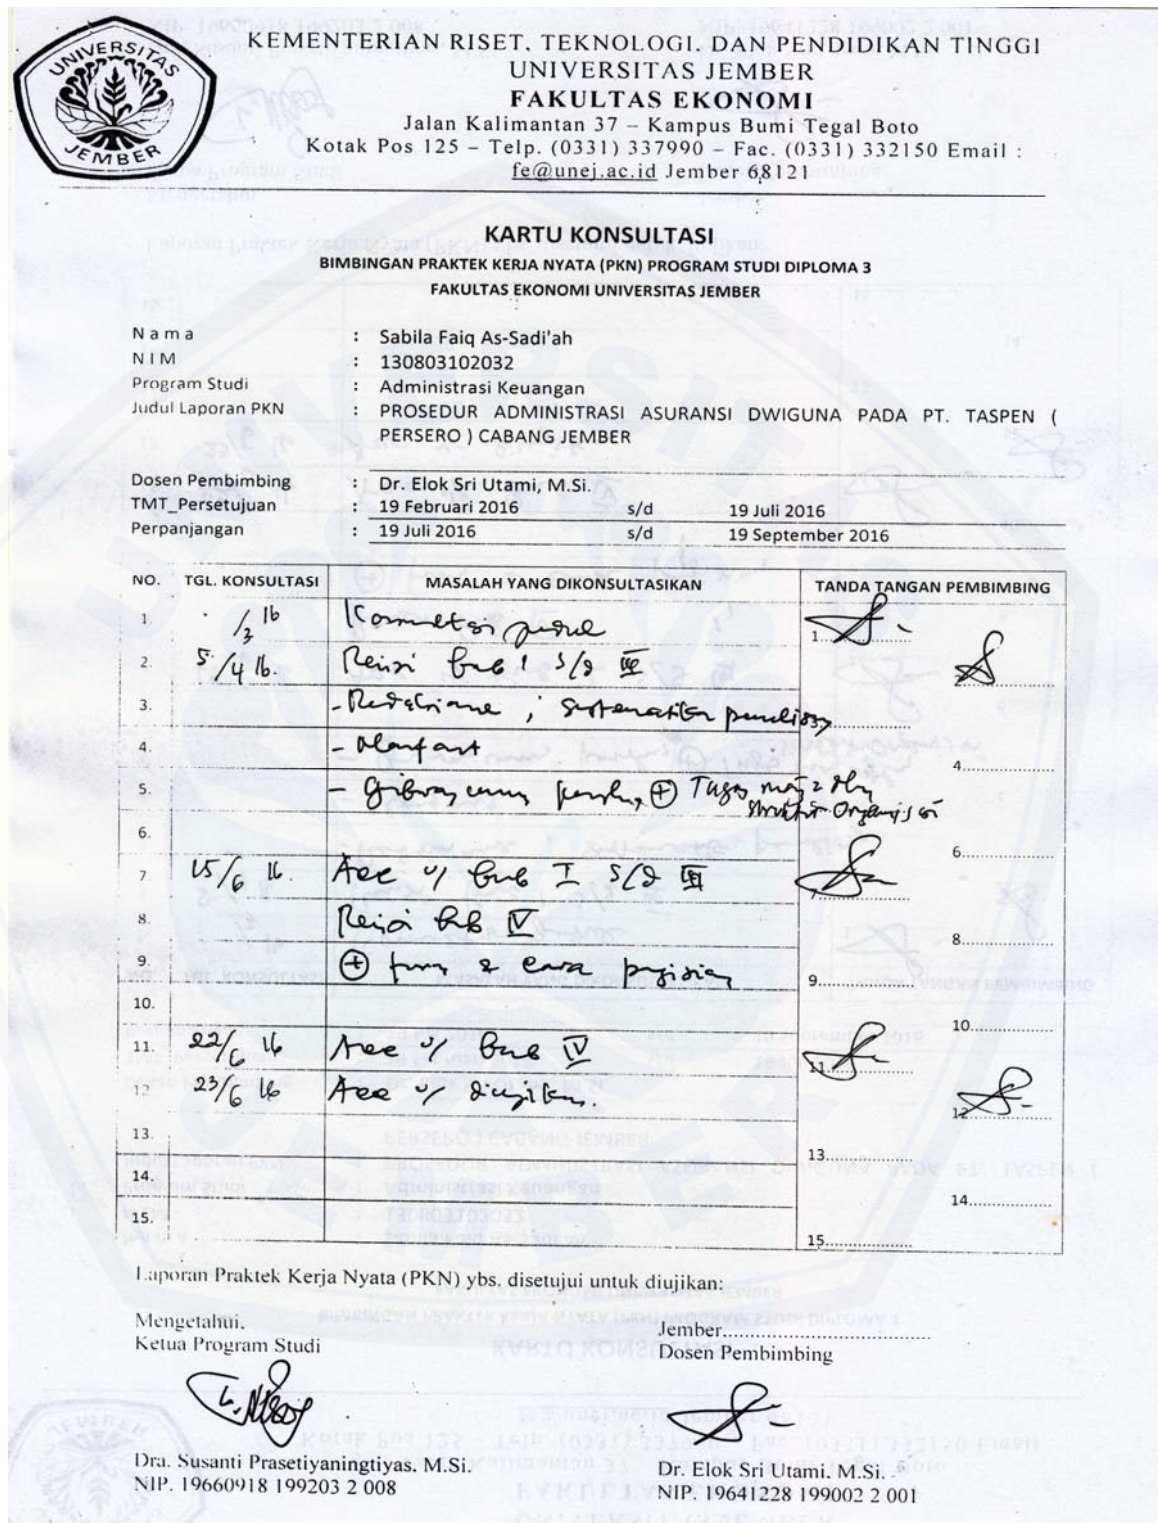 UNIVERSITAS
JEMBER
KEMENTERIAN RISET. TEKNOLOGI. DAN PENDIDIKAN TINGGI
UNIVERSITAS JEMBER
FAKULTAS EKONOMI
Jalan Kalimantan 37 – Kampus Bumi Tegal Boto
Kotak Pos 125 – Telp. (0331) 337990 – Fac. (0331) 332150 Email :
fe@unej.ac.id Jember 68121
KARTU KONSULTASI
BIMBINGAN PRAKTEK KERJA NYATA (PKN) PROGRAM STUDI DIPLOMA 3
FAKULTAS EKONOMI UNIVERSITAS JEMBER
N a m a : Sabila Faiq As-Sadi'ah
N I M : 130803102032
Program Studi : Administrasi Keuangan
Judul Laporan PKN : PROSEDUR ADMINISTRASI ASURANSI DWIGUNA PADA PT. TASPEN (
PERSERO ) CABANG JEMBER
Dosen Pembimbing : Dr. Elok Sri Utami, M.Si.
TMT_Persetujuan : 19 Februari 2016 s/d 19 Juli 2016
Perpanjangan : 19 Juli 2016 s/d 19 September 2016
NO. TGL. KONSULTASI MASALAH YANG DIKONSULTASIKAN TANDA TANGAN PEMBIMBING
1. /3 16 Konsultasi judul 1
2. 5/4 16. Revisi bab I s/d III 2
3. ; sistematika 3
4. - Manfaat 4
5. - ⊕ Tugas struktur organisasi
6. 6
7. 15/6 16. Acc u/ bab I s/d III 7
8. Revisi bab IV 8
9. ⊕ cara pengisian 9
10. 10
11. 22/6 16 Acc u/ bab IV 11
12 23/6 16 Acc u/ diujikan. 12
13. 13
14. 14
15. 15
Laporan Praktek Kerja Nyata (PKN) ybs. disetujui untuk diujikan:
Mengetahui.
Ketua Program Studi
Jember
Dosen Pembimbing
Dra. Susanti Prasetiyaningtiyas. M.Si.
NIP. 19660918 199203 2 008
Dr. Elok Sri Utami. M.Si.
NIP. 19641228 199002 2 001